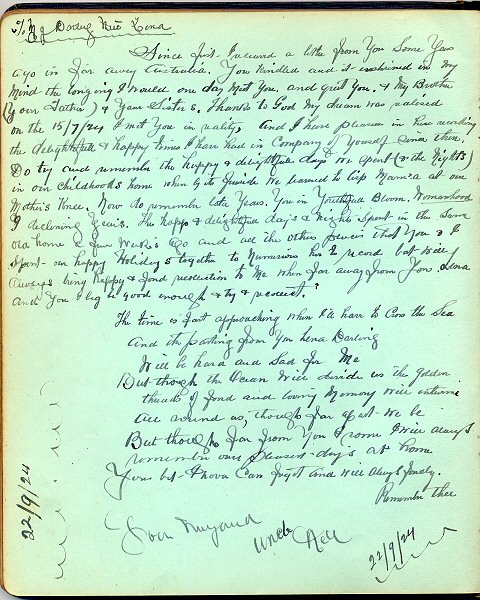 My Darling Niece Lena
Since first I received a letter from You Some Years
ago in far away Australia. You Kindled and it enshrined in my
Mind the longing I would one day Meet You, and greet You. & My Brother
(Your Father) & Your Sisters. Thanks to God My dream was realised
on the 15/7/24 I met You in reality, And I have pleasure in here recording
the delightful & happy times I have had in Company of Yourself Lena then.
Do try and remember the happy & delightful days we spent (& the Nights)
in our childhood's home when by its fireside We learned to lisp Mamma at our
Mother's Knee. Now to remember late Years. You in Youthful Bloom, Womanhood
I declining Years. The happy & delightful days & nights Spent in the Same
old home a few Weeks ago and all the other places that You & I
Spent our happy Holidays together to Numerous here to record but will
always bring happy & fond recollection to Me when far away from You Lena
And You I beg be good enough & try & recollect.
The time is fast approaching when I'll have to Cross the Sea
And the parting from You Lena Darling
Will be hard and Sad for Me
But though the Ocean Will divide us the golden
threads of fond and loving Memory Will entwine
All around us, though far apart We be
But though far from You I roam I will always
remember our pleasure days at home
Yours but I never Can forget And will always fondly.
Remember thee
Your
Uncle
22/9/24
22/9/24